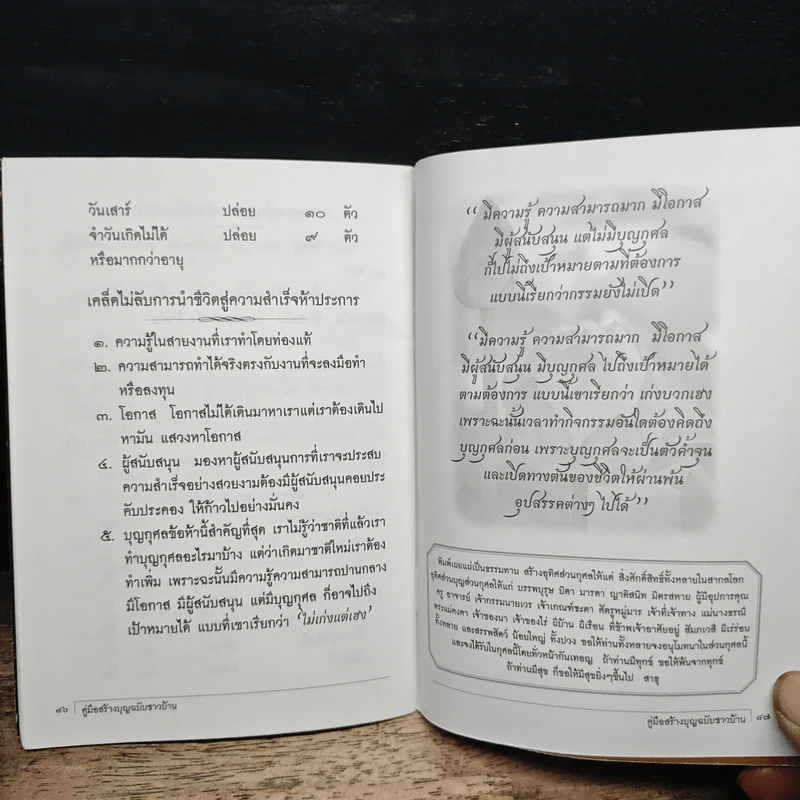 วันเสาร์ ปล่อย ๑๐ ตัว
จำวันเกิดไม่ได้ ปล่อย ๙ ตัว
หรือมากกว่าอายุ
เคล็ดไม่ลับการนำชีวิตสู่ความสำเร็จห้าประการ
๑. ความรู้ในสายงานที่เราทำโดยท่องแท้
๒. ความสามารถทำได้จริงตรงกับงานที่จะลงมือทำ
หรือลงทุน
๓. โอกาส โอกาสไม่ได้เดินมาหาเราแต่เราต้องเดินไป
หามัน แสวงหาโอกาส
๔. ผู้สนับสนุน มองหาผู้สนับสนุนการที่เราจะประสบ
ความสำเร็จอย่างสวยงามต้องมีผู้สนับสนุนคอยประ
คับประคอง ให้ก้าวไปอย่างมั่นคง
๕. บุญกุศลข้อห้านี้สำคัญที่สุด เราไม่รู้ว่าชาติที่แล้วเรา
ทำบุญกุศลอะไรมาบ้าง แต่ว่าเกิดมาชาติใหม่เราต้อง
ทำเพิ่ม เพราะฉะนั้นมีความรู้ความสามารถปานกลาง
มีโอกาส มีผู้สนับสนุน แต่มีบุญกุศล ก็อาจไปถึง
เป้าหมายได้ แบบที่เขาเรียกว่า ‘ไม่เก่งแต่เฮง’
๔๖ คู่มือสร้างบุญฉบับชาวบ้าน
“ มีความรู้ ความสามารถมาก มีโอกาส
มีผู้สนับสนุน แต่ไม่มีบุญกุศล
ก็ไปไม่ถึงเป้าหมายตามที่ต้องการ
แบบนี้เรียกว่ากรรมยังไม่เปิด”
“มีความรู้ ความสามารถมาก มีโอกาส
มีผู้สนับสนุน มีบุญกุศล ไปถึงเป้าหมายได้
ตามต้องการ แบบนี้เขาเรียกว่า เก่งบวกเฮง
เพราะฉะนั้นเวลาทำกิจกรรมอันใดต้องคิดถึง
บุญกุศลก่อน เพราะบุญกุศลจะเป็นตัวค้ำจุน
และเปิดทางตันของชีวิตให้ผ่านพ้น
อุปสรรคต่างๆ ไปได้”
พิมพ์เผยแผ่เป็นธรรมทาน สร้างอุทิศส่วนกุศลให้แด่ สิ่งศักดิ์สิทธิ์ทั้งหลายในสากลโลก
อุทิศส่วนบุญส่วนกุศลให้แก่ บรรพบุรุษ บิดา มารดา ญาติสนิท มิตรสหาย ผู้มีอุปการคุณ
ครู อาจารย์ เจ้ากรรมนายเวร เจ้าเกณฑ์ชะตา ศัตรูหมู่มาร เจ้าที่เจ้าทาง แม่นางธรณี
พระแม่คงคา เจ้าของนา เจ้าของไร่ ผีบ้าน ผีเรือน ที่ข้าพเจ้าอาศัยอยู่ สัมภเวสี ผีเร่ร่อน
ทั้งหลาย และสรรพสัตว์ น้อยใหญ่ ทั้งปวง ขอให้ท่านทั้งหลายจงอนุโมทนาในส่วนกุศลนี้
และจงได้รับในกุศลนี้โดยทั่วหน้ากันเทอญ ถ้าท่านมีทุกข์ ขอให้พ้นจากทุกข์
ถ้าท่านมีสุข ก็ขอให้มีสุขยิ่งๆขึ้นไป สาธุ
คู่มือสร้างบุญฉบับชาวบ้าน ๔๗